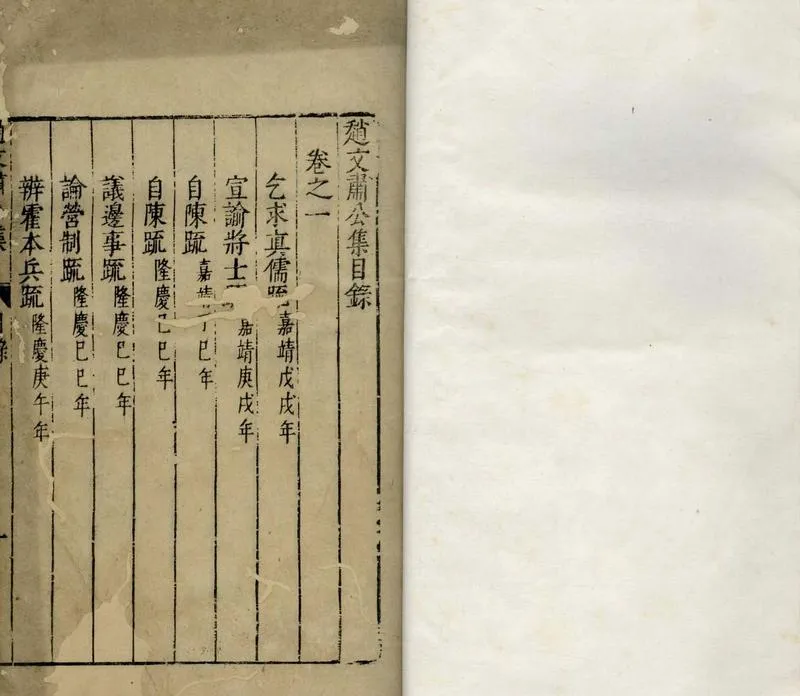 趙文肅公集目錄
卷之一
乞求真儒疏 嘉靖戊戌年
宣諭將士 嘉靖庚戌年
自陳疏 嘉靖 巳年
自陳疏 隆慶巳巳年
議邊事疏 隆慶巳巳年
論營制疏 隆慶巳巳年
辨霍本兵疏 隆慶庚午年